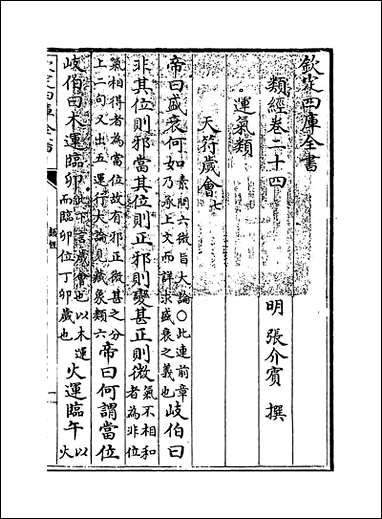 欽定四庫全書
類經卷二十四
明 張介賓 撰
運氣類
天符歲會七
帝曰盛衰何如素問六微旨大論○此連前章乃承上文而詳求盛衰之義也岐伯曰
非其位則邪當其位則正邪則變甚正則微氣不相和者為非位
氣相得者為當位故有邪正微甚之分上二句又出五運行大論見藏象類六帝曰何謂當位
岐伯曰木運臨卯此下言歲會也以木運而臨卯位丁卯歲也火運臨午以火
欽定四庫全書
類經